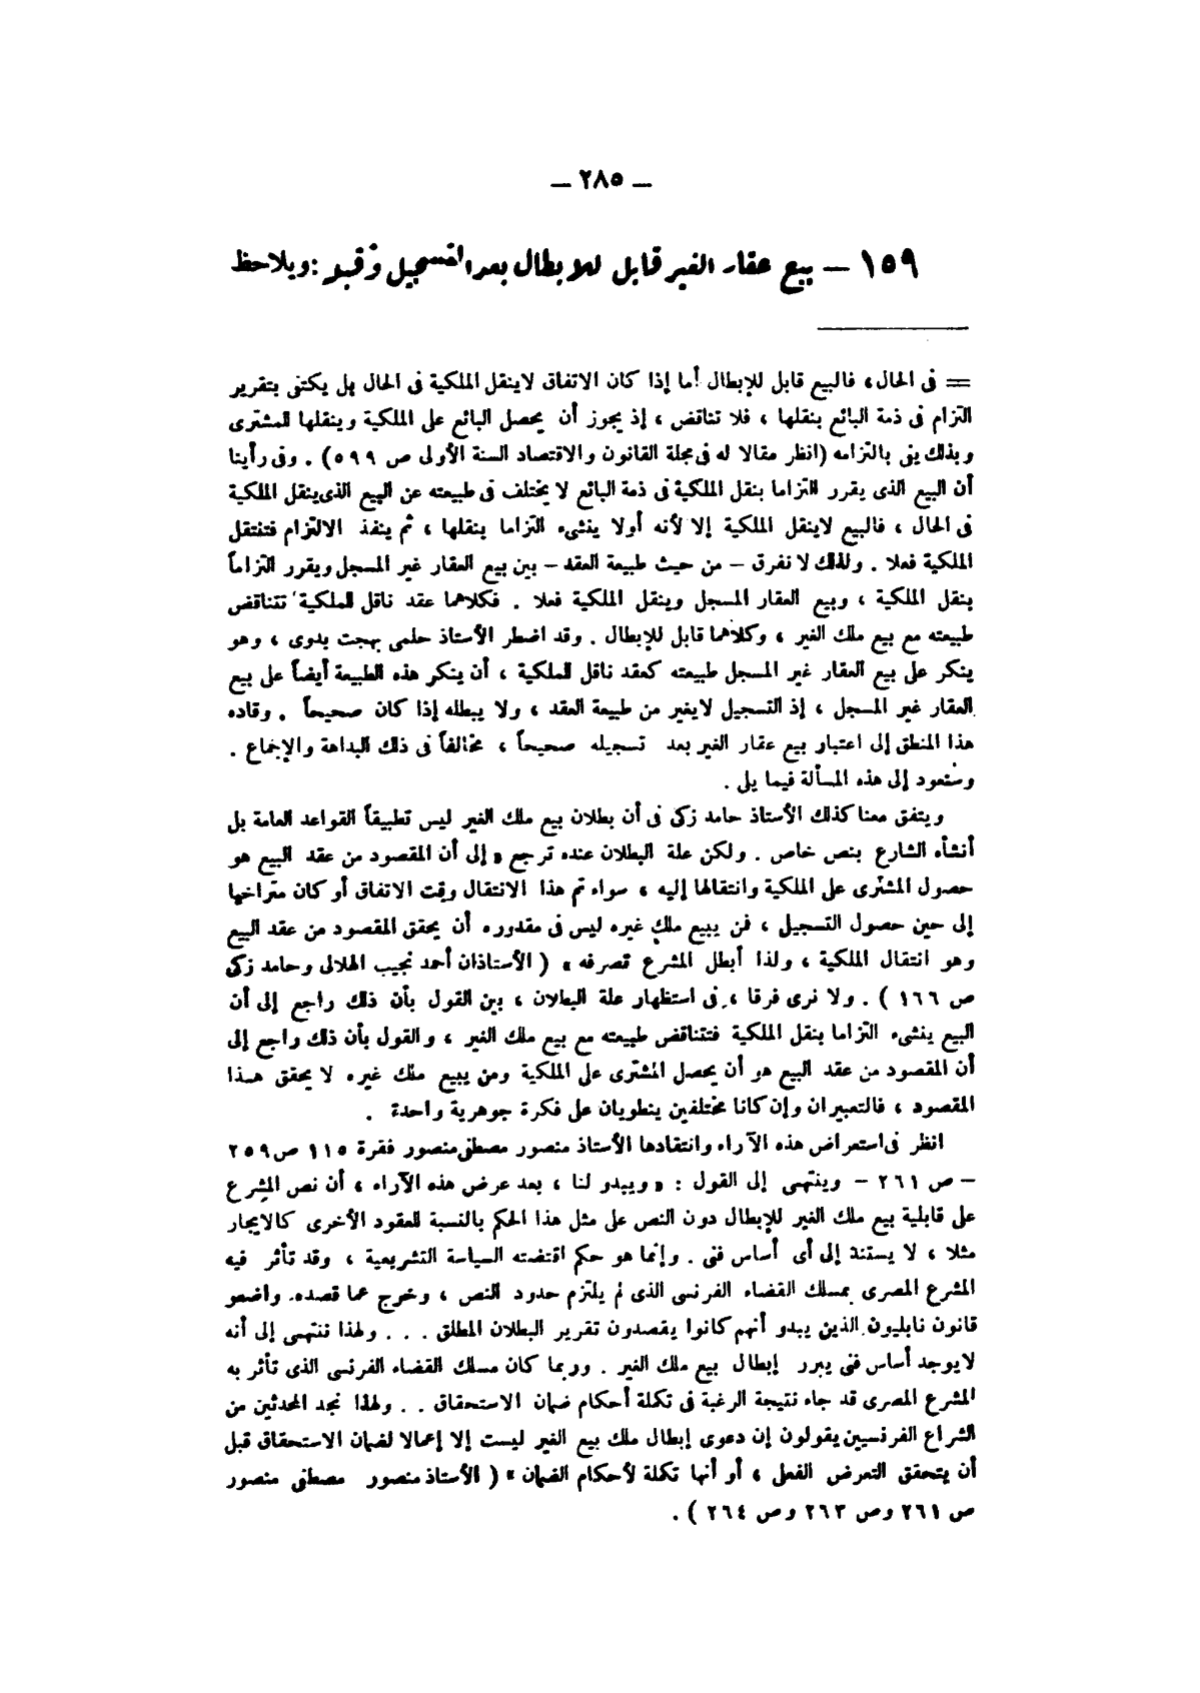 — ٢٨٥ —
١٥٩ — بيع عقار الغير قابل للابطال بعد التسجيل وقبله : ويلاحظ
= فى الحال، فالبيع قابل للإبطال أما إذا كان الاتفاق لاينقل الملكية فى الحال بل يكتفى بتقرير
التزام فى ذمة البائع بنقلها ، فلا تناقض ، إذ يجوز أن يحصل البائع على الملكية وينقلها للمشترى
وبذلك يفى بالتزامه (انظر مقالا له فى مجلة القانون والاقتصاد السنة الأولى ص ٥٩٩) . وفى رأينا
أن البيع الذى يقرر التزاما بنقل الملكية فى ذمة البائع لا يختلف فى طبيعته عن البيع الذى ينقل الملكية
فى الحال ، فالبيع لاينقل الملكية إلا لأنه أولا ينشىء التزاما بنقلها ، ثم ينفذ الالتزام فتنتقل
الملكية فعلا . ولذلك لا نفرق – من حيث طبيعة العقد – بين بيع العقار غير المسجل ويقرر التزاماً
بنقل الملكية ، وبيع العقار المسجل وينقل الملكية فعلا . فكلاهما عقد ناقل للملكية تتناقض
طبيعته مع بيع ملك الغير ، وكلاهما قابل للإبطال . وقد اضطر الأستاذ حلمى بهجت بدوى ، وهو
ينكر على بيع العقار غير المسجل طبيعته كعقد ناقل للملكية ، أن ينكر هذه الطبيعة أيضاً على بيع
العقار غير المسجل ، إذ التسجيل لايغير من طبيعة العقد ، ولا يبطله إذا كان صحيحاً . وقاده
هذا المنطق إلى اعتبار بيع عقار الغير بعد تسجيله صحيحاً ، مخالفاً فى ذلك البداهة والإجماع .
وسنعود إلى هذه المسألة فيما يلى .
ويتفق معنا كذلك الأستاذ حامد زكى فى أن بطلان بيع ملك الغير ليس تطبيقاً للقواعد العامة بل
أنشأه الشارع بنص خاص . ولكن علة البطلان عنده ترجع « إلى أن المقصود من عقد البيع هو
حصول المشترى على الملكية وانتقالها إليه ، سواء تم هذا الانتقال وقت الاتفاق أو كان متراخيا
إلى حين حصول التسجيل ، فمن يبيع ملك غيره ليس فى مقدوره أن يحقق المقصود من عقد البيع
وهو انتقال الملكية ، ولذا أبطل المشرع تصرفه » ( الأستاذان أحمد نجيب الهلالى وحامد زكى
ص ١٦٦ ) . ولا نرى فرقا ، فى استظهار علة البطلان ، بين القول بأن ذلك راجع إلى أن
البيع ينشىء التزاما بنقل الملكية فتتناقض طبيعته مع بيع ملك الغير ، والقول بأن ذلك راجع إلى
أن المقصود من عقد البيع هو أن يحصل المشترى على الملكية ومن يبيع ملك غيره لا يحقق هذا
المقصود ، فالتعبيران وإن كانا مختلفين ينطويان على فكرة جوهرية واحدة .
انظر فى استعراض هذه الآراء وانتقادها الأستاذ منصور مصطفى منصور فقرة ١١٥ ص ٢٥٩
– ص ٢٦١ – وينتهى إلى القول : « ويبدو لنا ، بعد عرض هذه الآراء ، أن نص المشرع
على قابلية بيع ملك الغير للإبطال دون النص على مثل هذا الحكم بالنسبة للعقود الأخرى كالايجار
مثلا ، لا يستند إلى أى أساس فنى . وإنما هو حكم اقتضته السياسة التشريعية ، وقد تأثر فيه
المشرع المصرى بمسلك القضاء الفرنسى الذى لم يلتزم حدود النص ، وخرج عما قصده واضعو
قانون نابليون الذين يبدو أنهم كانوا يقصدون تقرير البطلان المطلق . . . ولهذا ننتهى إلى أنه
لايوجد أساس فنى يبرر إبطال بيع ملك الغير . وربما كان مسلك القضاء الفرنسى الذى تأثر به
المشرع المصرى قد جاء نتيجة الرغبة فى تكملة أحكام ضمان الاستحقاق . . ولهذا نجد المحدثين من
الشراع الفرنسيين يقولون إن دعوى إبطال ملك بيع الغير ليست إلا إعمالا لضمان الاستحقاق قبل
أن يتحقق التعرض الفعلى ، أو أنها تكملة لأحكام الضمان » ( الأستاذ منصور مصطفى منصور
ص ٢٦١ وص ٢٦٣ وص ٢٦٤ ) .